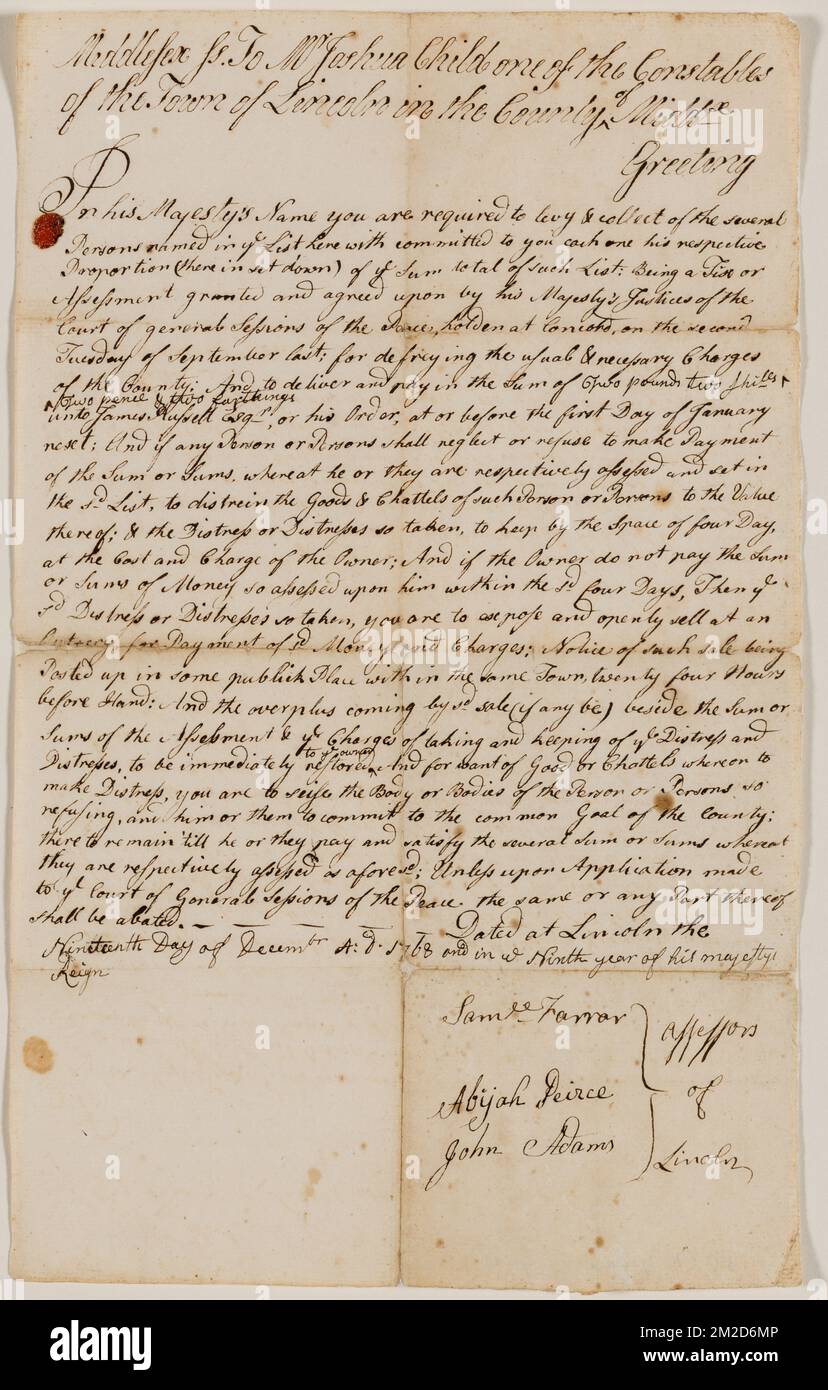 Middlesex ss. To Mr Joshua Child one of the Constables
of the Town of Lincoln in the County of Middx
Greeting
In his Majesty's Name you are required to levy & collect of the several
Persons named in ye List here with committed to you each one his respective
Proportion (there in set down) of ye Sum total of such List: Being a Tax or
Assessment granted and agreed upon by his Majesty's Justices of the
Court of general Sessions of the Peace, holden at Concord, on the second
Tuesday of September last; for defreying the usual & necessary Charges
of the County: And to deliver and pay in the Sum of Two pounds two shiles
Two pence & two farthings
unto James Russell Esqr, or his Order, at or before the first Day of January
next: And if any Person or Persons shall neglect or refuse to make Payment
of the Sum or Sums, whereat he or they are respectively assessed and set in
the sd List, to distrein the Goods & Chattels of such Person or Persons to the Value
thereof; & the Distress or Distresses so taken, to keep by the Space of four Day,
at the Cost and Charge of the Owner; And if the Owner do not pay the Sum
or Sums of Money so assessed upon him within the sd four Days, Then ye
sd Distress or Distresses so taken, you are to expose and openly sell at an
Outcry for Payment of sd Money and Charges; Notice of such sale being
Posted up in some publick Place with in the same Town, twenty four Hours
before Hand: And the overplus coming by sd sale (if any be) beside the Sum or
Sums of the Assessment & ye Charges of taking and keeping of ye Distress and
Distresses, to be immediately restored to ye owner And for want of Good or Chattels whereon to
make Distress, you are to seise the Body or Bodies of the Person or Persons so
refusing, and him or them to commit to the common Goal of the County;
there to remain 'till he or they pay and satisfy the several Sum or Sums whereat
they are respectively assessed as aforesd; Unless upon Application made
to ye Court of General Sessions of the Peace the same or any Part thereof
shall be abated. — Dated at Lincoln the
Nineteenth Day of Decembr A: d: 1768 and in ye Ninth year of his majestys
Reign
Samll Farrar
Abijah Peirce
John Adams
Assessors
of
Lincoln
alamy
Image ID: 2M2D6MP
www.alamy.com